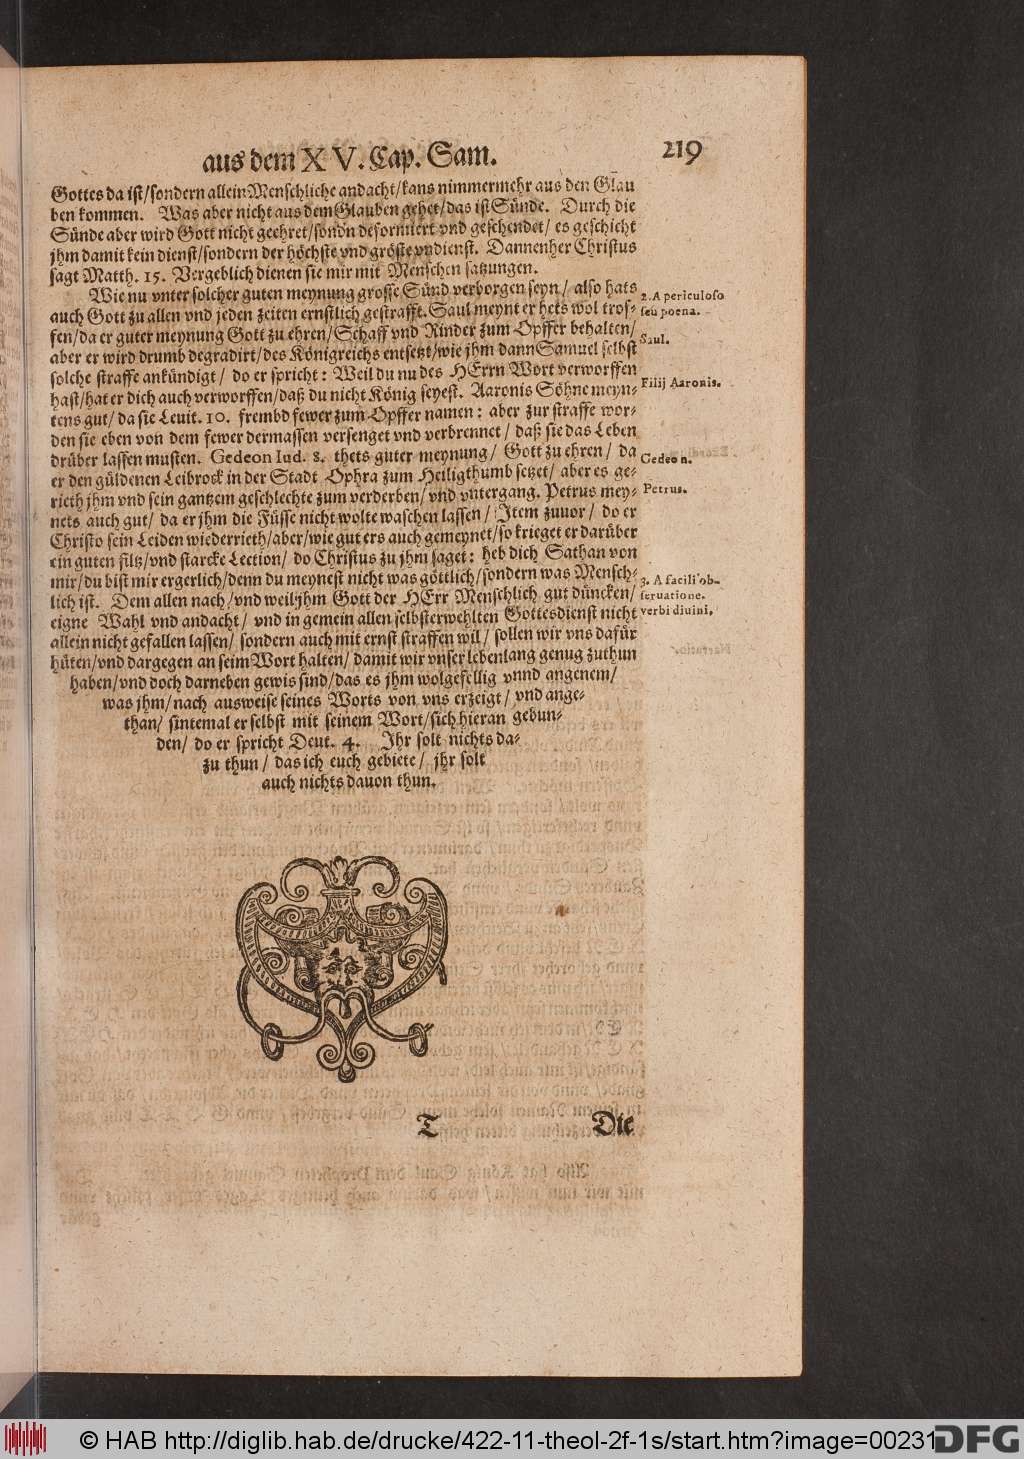 aus dem XV. Cap. Sam. 219
Gottes da ist/sondern allein Menschliche andacht/kans nimmermehr aus den Glau
ben kommen. Was aber nicht aus dem Glauben gehet/das ist Sünde. Durch die
Sünde aber wird Gott nicht geehret/sondn deformiert vnd geschendet/ es geschicht
jhm damit kein dienst/sondern der höchste vnd gröste vndienst. Dannenher Christus
sagt Matth. 15. Vergeblich dienen sie mir mit Menschen satzungen.
Wie nu vnter solcher guten meynung grosse Sünd verborgen seyn/ also hats
auch Gott zu allen vnd jeden zeiten ernstlich gestrafft. Saul meynt er hets wol trof-
fen/da er guter meynung Gott zu ehren/Schaff vnd Rinder zum Opffer behalten/
aber er wird drumb degradirt/des Königreichs entsetzt/wie jhm dann Samuel selbst
solche straffe ankündigt/ do er spricht: Weil du nu des HErrn Wort verworffen
hast/hat er dich auch verworffen/daß du nicht König seyest. Aaronis Söhne meyn-
tens gut/ da sie Leuit. 10. frembd fewer zum Opffer namen: aber zur straffe wor-
den sie eben von dem fewer dermassen versenget vnd verbrennet/ daß sie das Leben
drüber lassen musten. Gedeon Iud. 8. thets guter meynung/ Gott zu ehren/ da
er den güldenen Leibrock in der Stadt Ophra zum Heiligthumb setzet/ aber es ge-
rieth jhm vnd sein gantzem geschlechte zum verderben/ vnd vntergang. Petrus mey-
nets auch gut/ da er jhm die Füsse nicht wolte waschen lassen/ Item zuuor/ do er
Christo sein Leiden wiederrieth/aber/wie gut ers auch gemeynet/so krieget er darüber
ein guten filtz/vnd starcke Lection/ do Christus zu jhm saget: heb dich Sathan von
mir/du bist mir ergerlich/denn du meynest nicht was göttlich/sondern was Mensch-
lich ist. Dem allen nach/vnd weil jhm Gott der HErr Menschlich gut düncken/
eigne Wahl vnd andacht/ vnd in gemein allen selbsterwehlten Gottesdienst nicht
allein nicht gefallen lassen/ sondern auch mit ernst straffen wil/ sollen wir vns dafür
hüten/vnd dargegen an seim Wort halten/ damit wir vnser lebenlang genug zuthun
haben/vnd doch darneben gewis sind/das es jhm wolgefellig vnnd angenem/
was jhm/nach ausweise seines Worts von vns erzeigt/ vnd ange-
than/ sintemal er selbst mit seinem Wort/sich hieran gebun-
den/ do er spricht Deut. 4. Ihr solt nichts da-
zu thun/ das ich euch gebiete/ jhr solt
auch nichts dauon thun.
2. A periculoso
seu poena.
Saul.
Filij Aaronis.
Gedeon.
Petrus.
3. A facili ob-
seruatione.
verbi diuini,
T Die
© HAB http://diglib.hab.de/drucke/422-11-theol-2f-1s/start.htm?image=00231
DFG